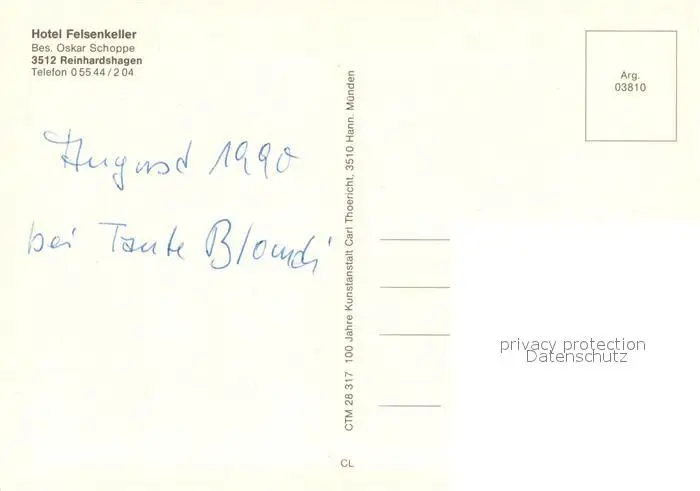 Hotel Felsenkeller
Bes. Oskar Schoppe
3512 Reinhardshagen
Telefon 0 55 44 / 2 04
August 1990
bei Tante Blondi
CTM 28 317 100 Jahre Kunstanstalt Carl Thoericht, 3510 Hann. Münden
CL
Arg.
03810
privacy protection
Datenschutz